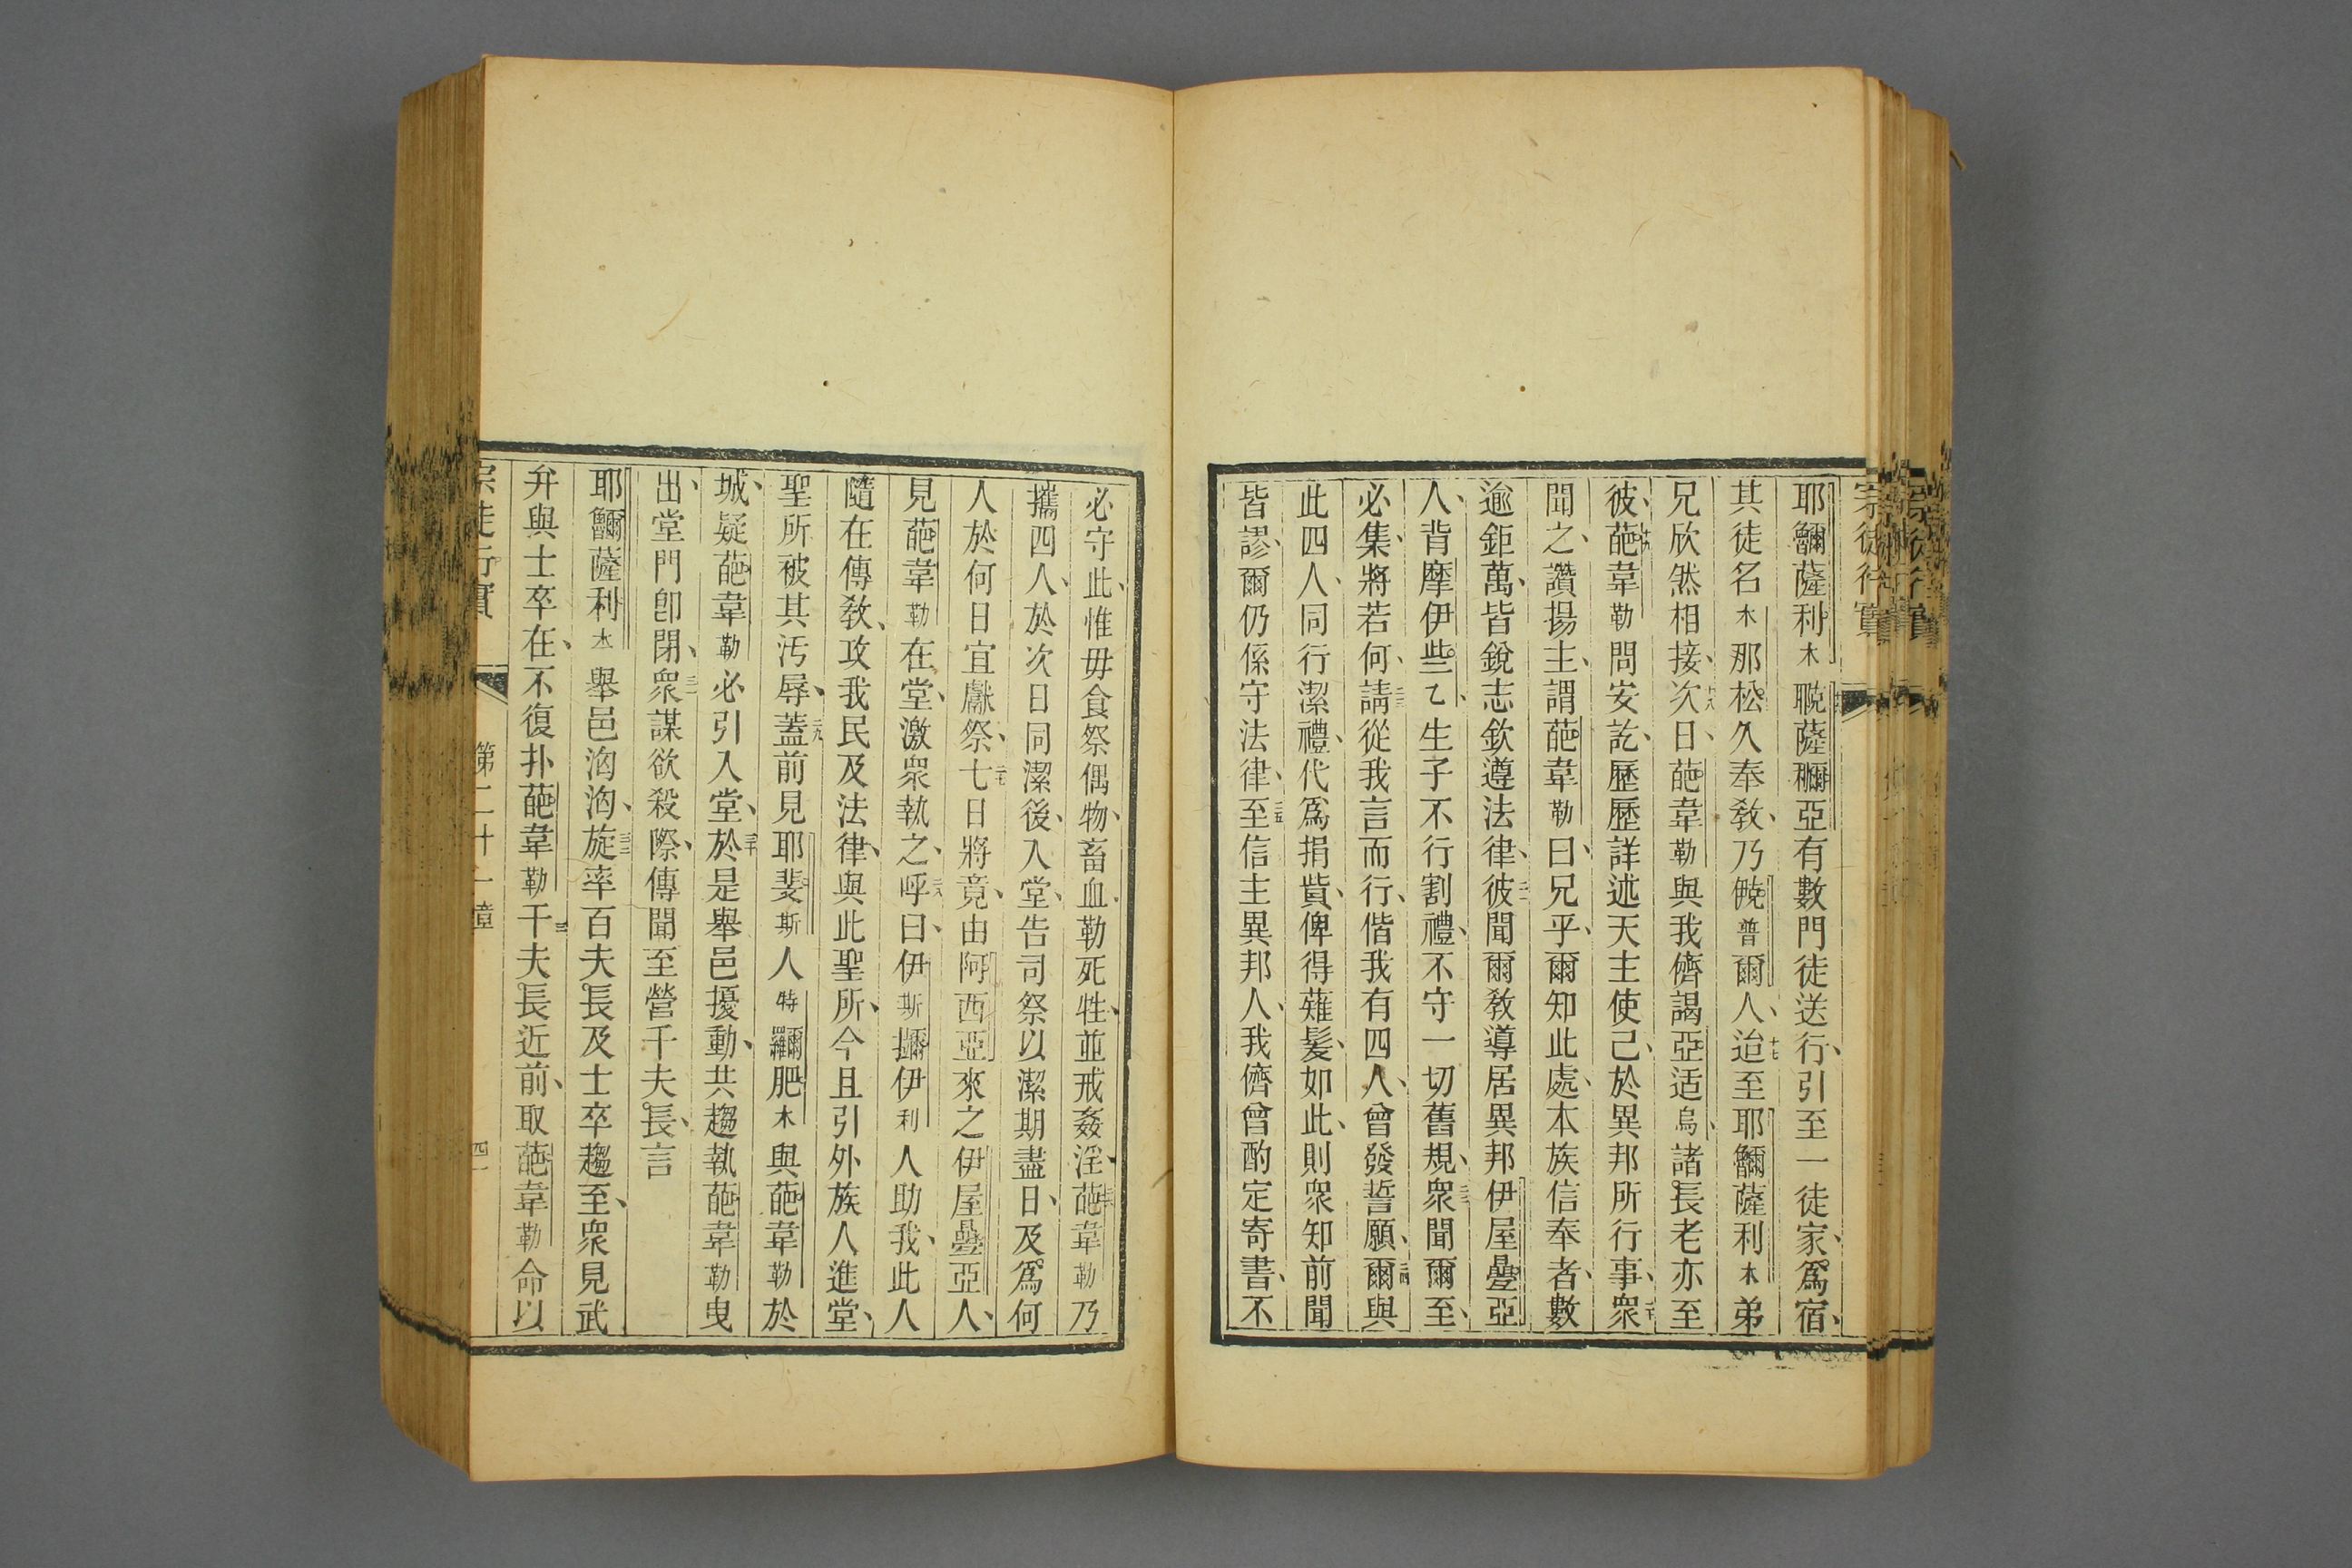 宗徒行實
耶𩼁薩利木聭薩穪亞有數門徒送行、引至一徒家、爲宿、
其徒名木那松久奉敎、乃僥普爾人、十七迨至耶𩼁薩利木弟
兄欣然相接、十八次日、葩韋勒與我儕謁亞适烏、諸長老亦至
彼、十九葩韋勒問安訖、歷歷詳述天主使己、於異邦所行事、二十衆
聞之、讚揚主、謂葩韋勒曰、兄乎、爾知此處、本族信奉者、數
逾鉅萬、皆銳志欽遵法律、二一彼聞爾敎導居異邦伊屋疊亞
人、背摩伊些乙、生子不行割禮、不守一切舊規、二二衆聞爾至、
必集、將若何、二三請從我言而行、偕我有四人、曾發誓願、二四爾與
此四人、同行潔禮、代爲捐貲、俾得薙髮、如此、則衆知前聞
皆謬、爾仍係守法律、二五至信主異邦人、我儕曾酌定寄書、不
必守此、惟毋食祭偶物、畜血、勒死牲、並戒姦淫、二六葩韋勒乃
攜四人、於次日同潔後、入堂、告司祭以潔期盡日、及爲何
人於何日宜獻祭、二七七日將竟、由阿西亞來之伊屋疊亞人、
見葩韋勒在堂、激衆執之、二八呼曰、伊斯擟伊利人助我、此人
隨在傳敎、攻我民及法律、與此聖所、今且引外族人進堂、
聖所被其汚辱、二九蓋前見耶斐斯人特羅爾肥木與葩韋勒於
城、疑葩韋勒必引入堂、三十於是舉邑擾動、共趨執葩韋勒曳
出、堂門卽閉、三一衆謀欲殺際、傳聞至營千夫長、言
耶𩼁薩利木舉邑洶洶、三二旋率百夫長及士卒趨至、衆見武
弁與士卒在、不復扑葩韋勒三三千夫長近前、取葩韋勒命以
宗徒行實 第二十一章 四一